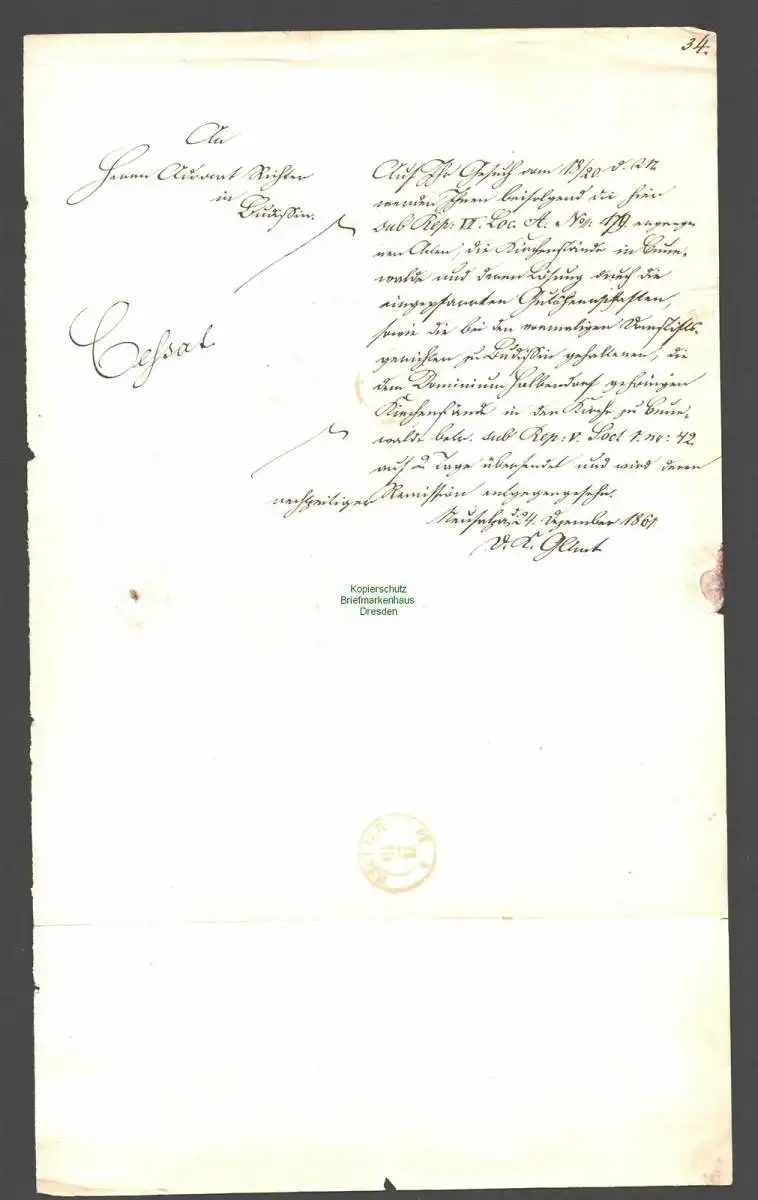 34.
An
Herrn Advocat Richter
in
Budissin.
Cessat
Auf Ihr Gesuch vom 18/20. d. M.
werden Ihnen beifolgend die hier
sub Rep: VI. Loc. A. No: 179. ergange-
nen Acten, die Kirchenstände in Cune-
walde und deren Lösung durch die
eingepfarrten Gutsherrschaften,
sowie die bei den vormaligen Domstifts-
gerichten zu Budissin gehaltenen, die
dem Dominium Halbendorf gehörigen
Kirchenstände in der Kirche zu Cune-
walde betr. sub Rep: V. Loct 1. no: 42.
auf 2 Tage übersendet und wird deren
rechtzeitiger Remission entgegengesehn.
Neusalza, 24. Dezember 1861.
D. K. GAmt.
Kopierschutz
Briefmarkenhaus
Dresden